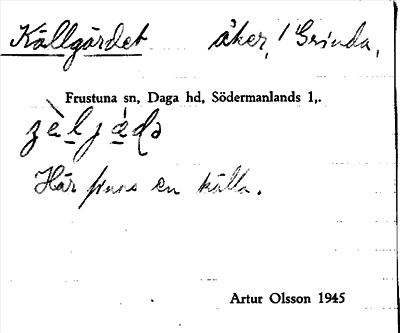 Källgärdet åker, i Grinda,
Frustuna sn, Daga hd, Södermanlands l,.
Här finns en källa.
Artur Olsson 1945